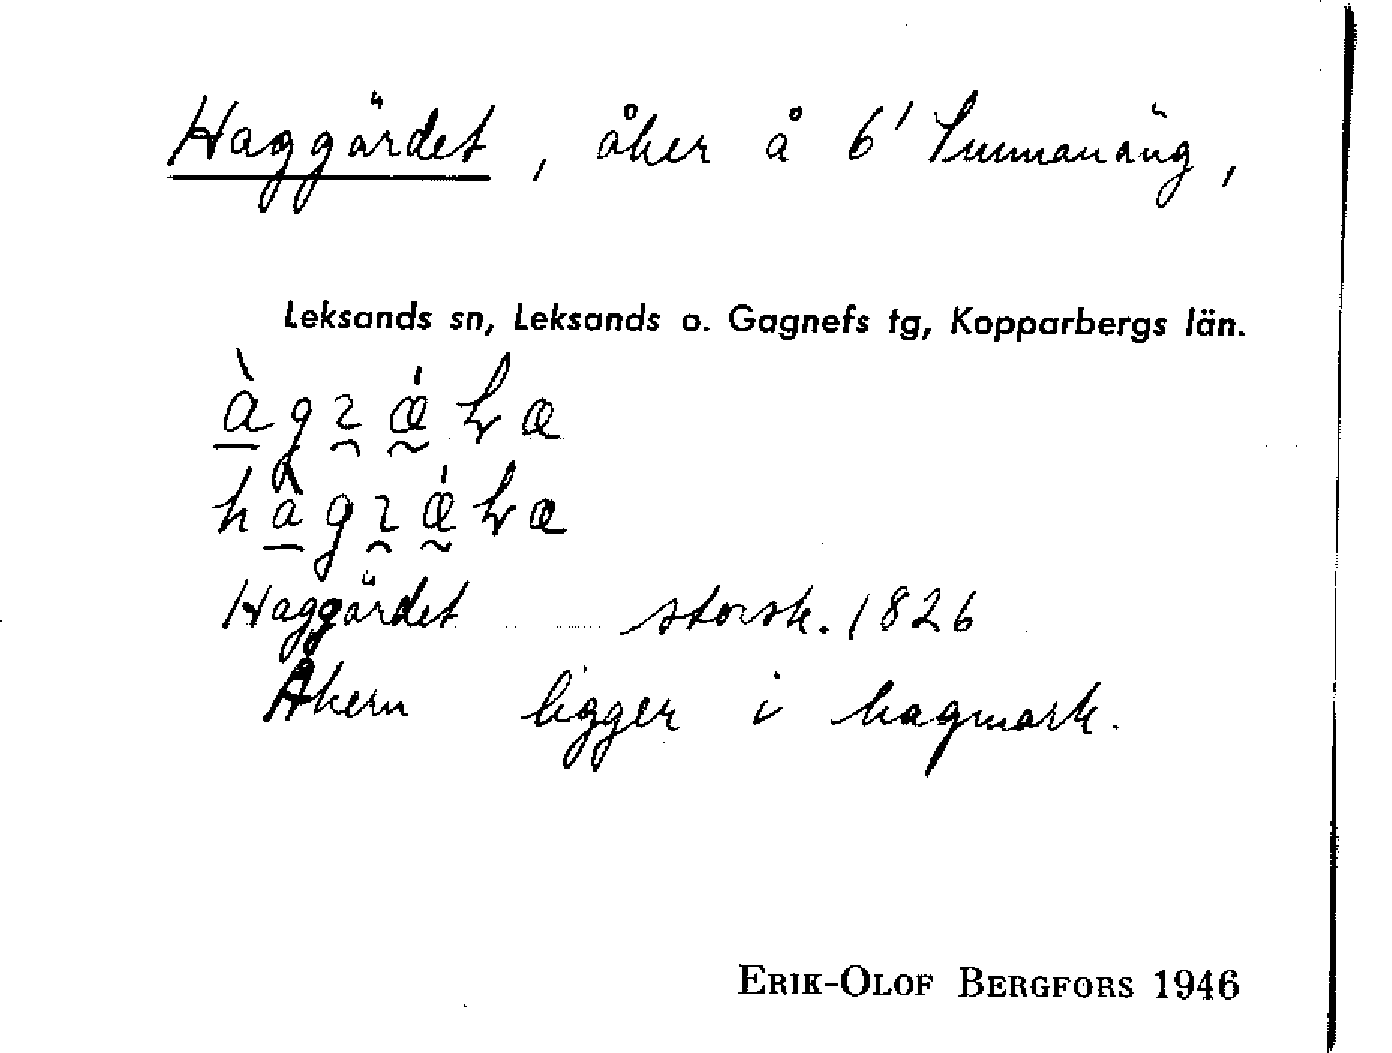 Haggärdet, åker å 6' Sunnanäng,
Leksands sn, Leksands o. Gagnefs tg, Kopparbergs län.
Haggärdet storsk. 1826
Åkern ligger i hagmark.
ERIK-OLOF BERGFORS 1946